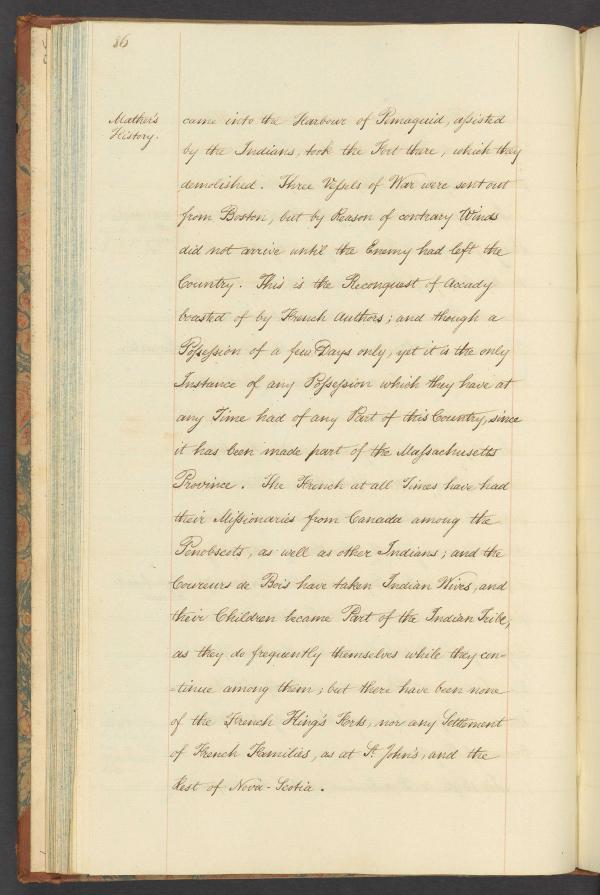 86
Mather's
History.
came into the Harbour of Pemaquid, assisted
by the Indians, took the Fort there, which they
demolished. Three Vessels of War were sent out
from Boston, but by Reason of contrary Winds
did not arrive until the Enemy had left the
Country. This is the Reconquest of Accady
boasted of by French Authors; and though a
Possession of a few Days only, yet it is the only
Instance of any Possession which they have at
any Time had of any Part of this Country, since
it has been made part of the Massachusetts
Province. The French at all Times have had
their Missionaries from Canada among the
Penobscots, as well as other Indians; and the
Coureurs de Bois have taken Indian Wives, and
their Children became Part of the Indian Tribe,
as they do frequently themselves while they con=
=tinue among them; but there have been none
of the French King's Forts, nor any Settlement
of French Families, as at St. John's, and the
Rest of Nova-Scotia.